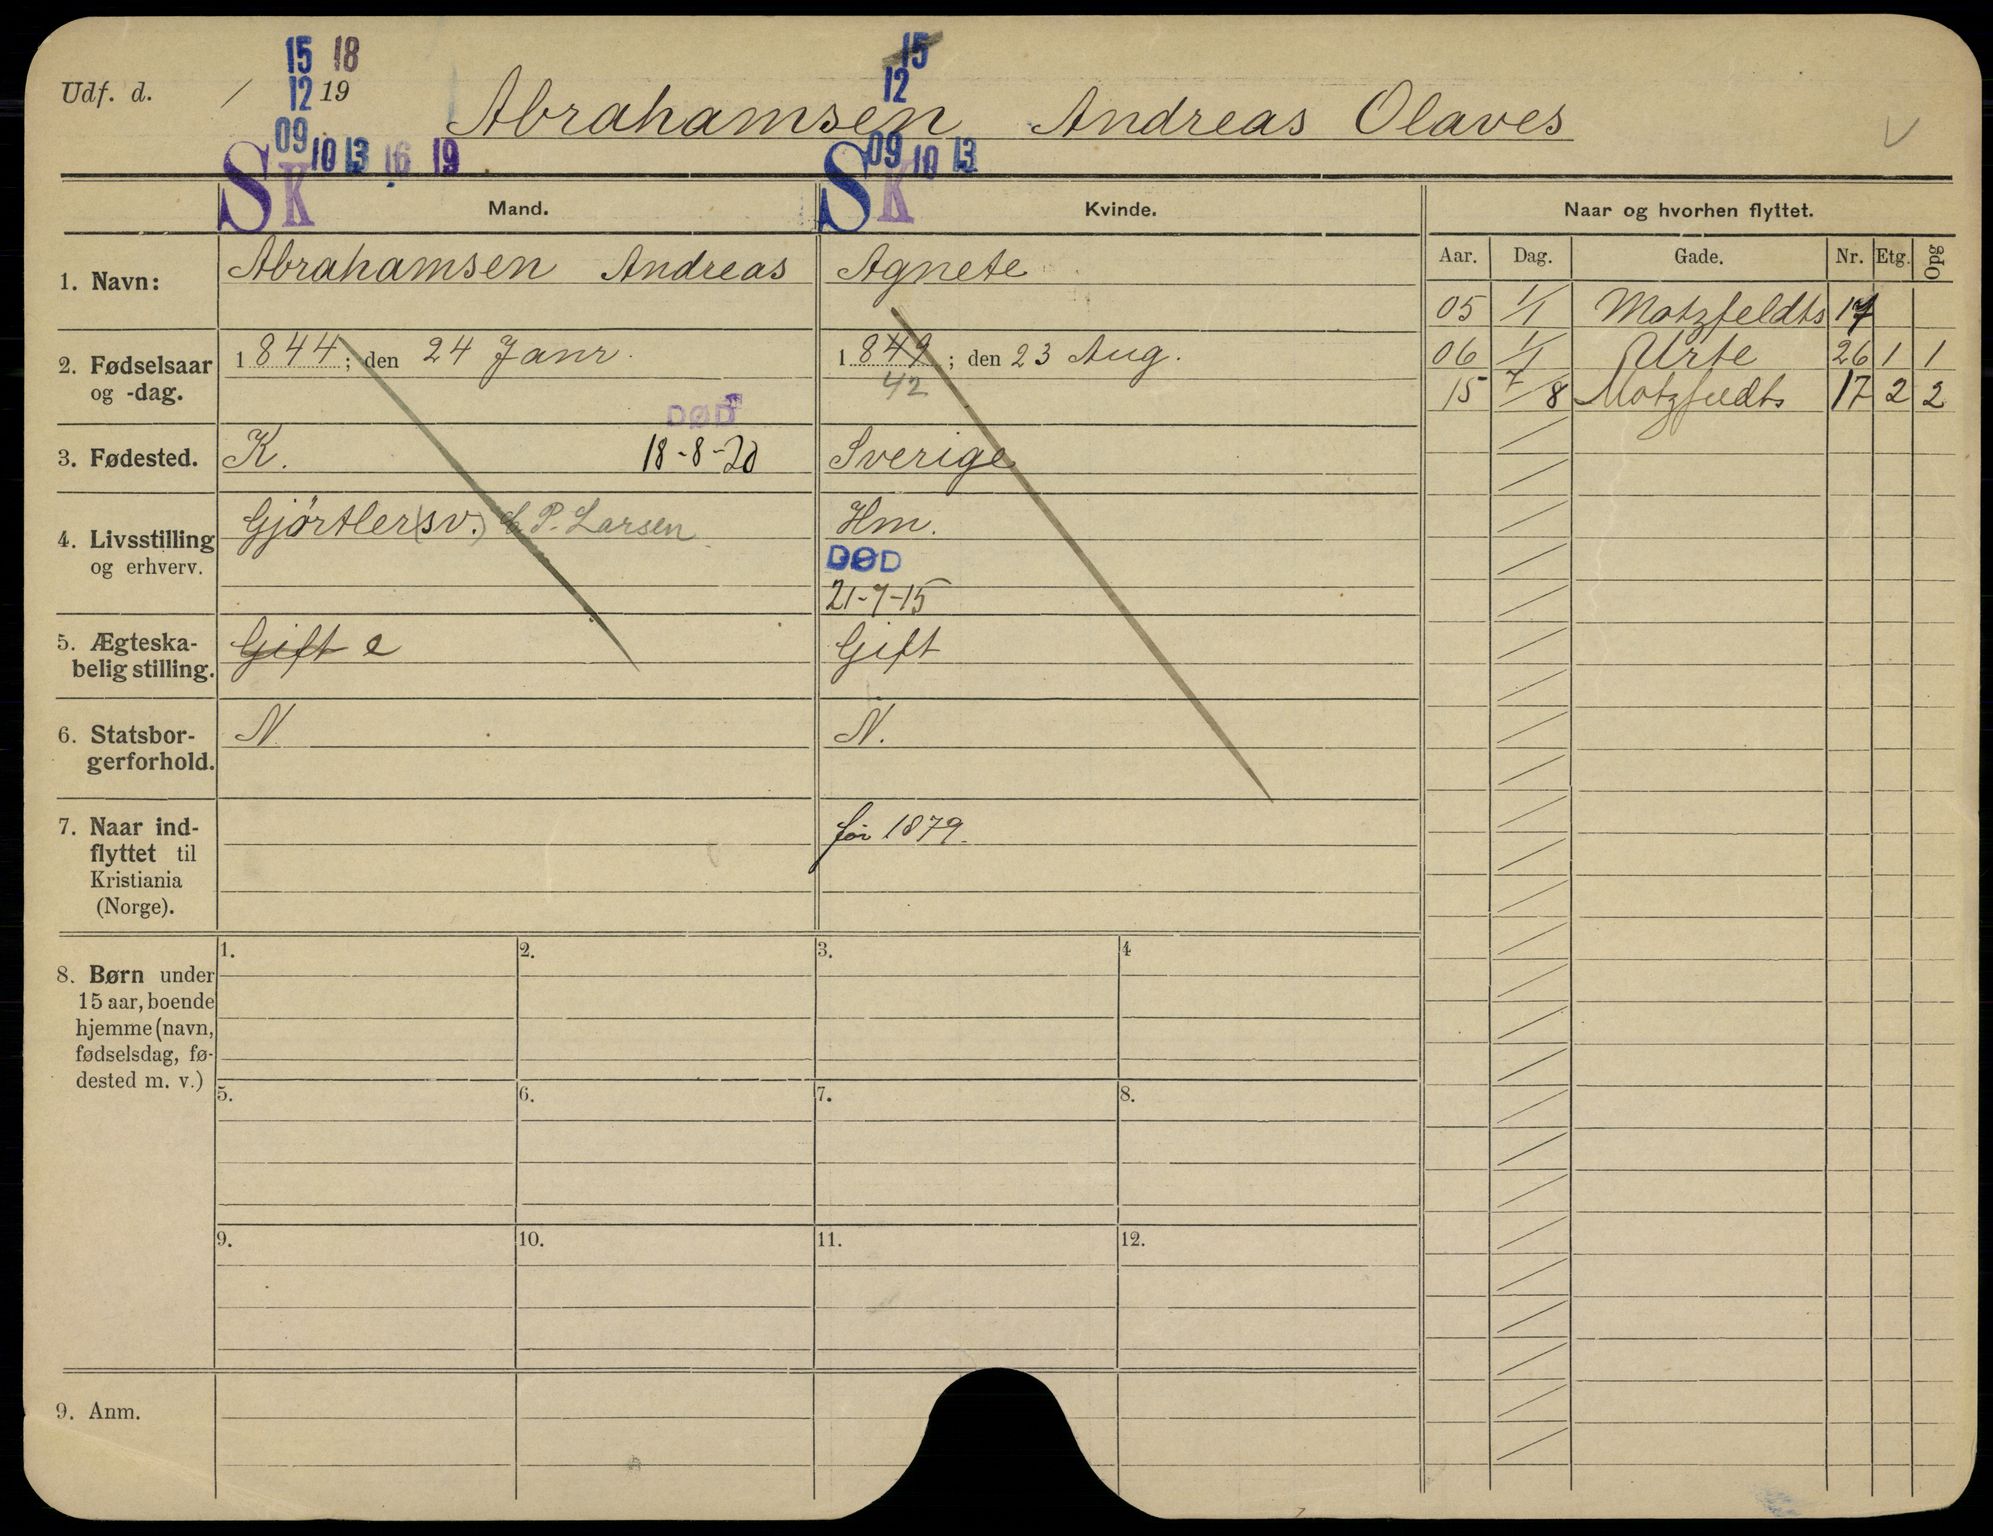 15 18
15
Udf. d. / 12 19
12
Abrahamsen Andreas Olaves
09 10 13 16 19
09 10 13
S K Mand. S K Kvinde. Naar og hvorhen flyttet.
Aar. Dag. Gade. Nr. Etg. Opg
1. Navn: Abrahamsen Andreas Agnete
05 1/1 Motzfeldts 17
2. Fødselsaar og -dag. 1844; den 24 Janr. 1849; den 23 Aug.
42
06 1/1 Urte 26 1 1
15 7/8 Motzfeldts 17 2 2
DØD
3. Fødested. K. 18-8-20 Sverige
4. Livsstilling og erhverv. Gjørtler(sv.) P. Larsen Hm.
DØD
21-7-15
5. Ægteska-
belig stilling. Gift e Gift
6. Statsbor-
gerforhold. N N.
7. Naar ind-
flyttet til
Kristiania
(Norge).
før 1879.
8. Børn under
15 aar, boende
hjemme (navn,
fødselsdag, fø-
dested m. v.)
1. 2. 3. 4
5. 6. 7. 8.
9. 10. 11. 12.
9. Anm.